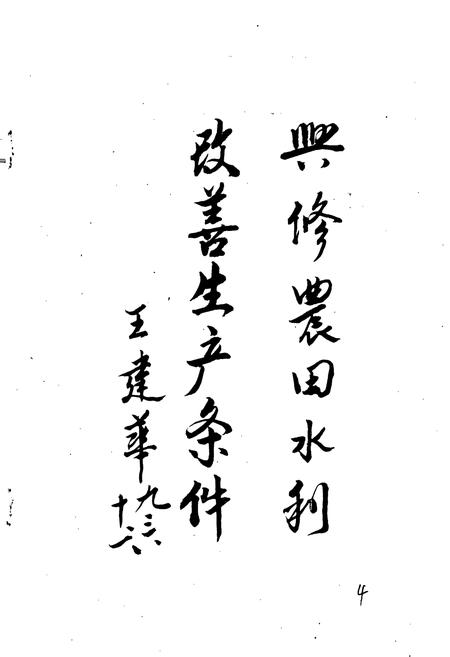 興修農田水利
改善生产条件
王建華
九三六
4